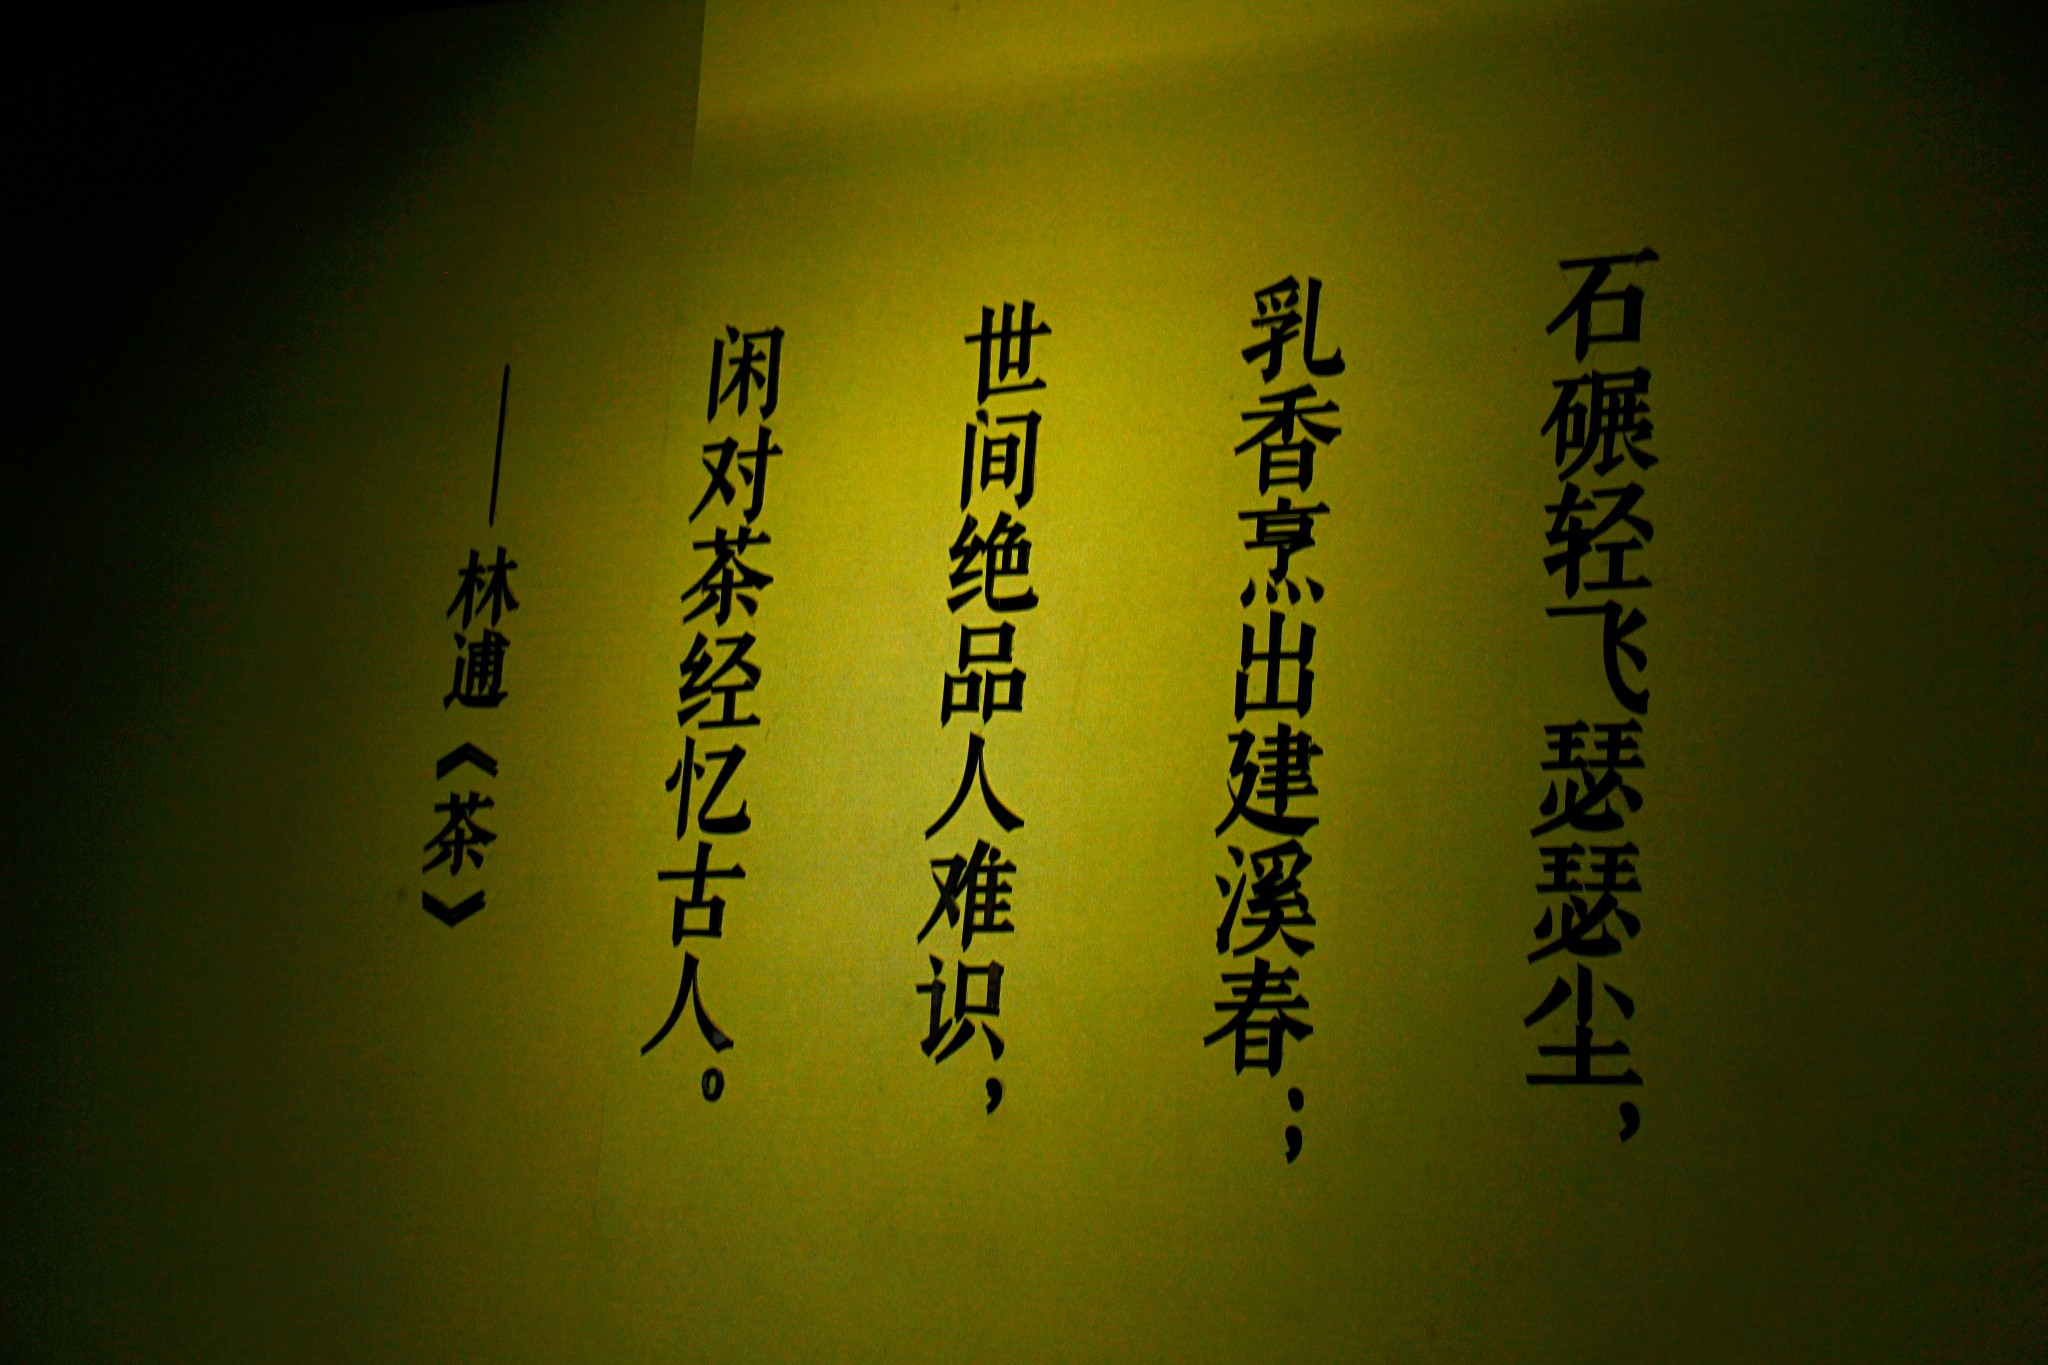 石碾轻飞瑟瑟尘，
乳香烹出建溪春；
世间绝品人难识，
闲对茶经忆古人。
——林逋《茶》